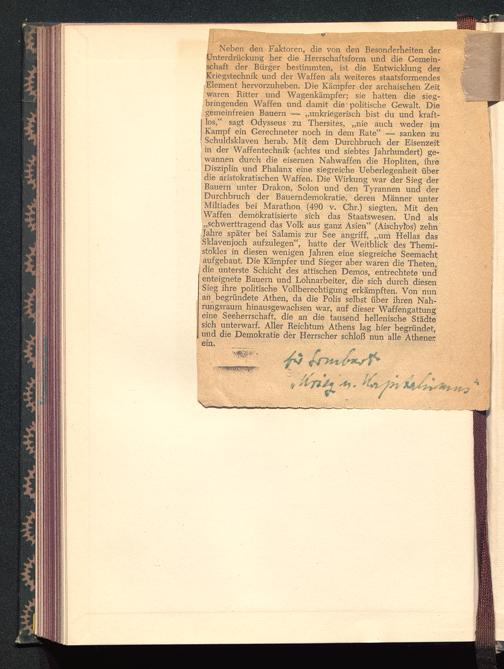 Neben den Faktoren, die von den Besonderheiten der
Unterdrückung her die Herrschaftsform und die Gemein-
schaft der Bürger bestimmten, ist die Entwicklung der
Kriegstechnik und der Waffen als weiteres staatsformendes
Element hervorzuheben. Die Kämpfer der archaischen Zeit
waren Ritter und Wagenkämpfer; sie hatten die sieg-
bringenden Waffen und damit die politische Gewalt. Die
gemeinfreien Bauern — „unkriegerisch bist du und kraft-
los,“ sagt Odysseus zu Thersites, „nie auch weder im
Kampf ein Gerechneter noch in dem Rate“ — sanken zu
Schuldsklaven herab. Mit dem Durchbruch der Eisenzeit
in der Waffentechnik (achtes und siebtes Jahrhundert) ge-
wannen durch die eisernen Nahwaffen die Hopliten, ihre
Disziplin und Phalanx eine siegreiche Ueberlegenheit über
die aristokratischen Waffen. Die Wirkung war der Sieg der
Bauern unter Drakon, Solon und den Tyrannen und der
Durchbruch der Bauerndemokratie, deren Männer unter
Miltiades bei Marathon (490 v. Chr.) siegten. Mit den
Waffen demokratisierte sich das Staatswesen. Und als
„schwerttragend das Volk aus ganz Asien“ (Aischylos) zehn
Jahre später bei Salamis zur See angriff, „um Hellas das
Sklavenjoch aufzulegen“, hatte der Weitblick des Themi-
stokles in diesen wenigen Jahren eine siegreiche Seemacht
aufgebaut. Die Kämpfer und Sieger aber waren die Theten,
die unterste Schicht des attischen Demos, entrechtete und
enteignete Bauern und Lohnarbeiter, die sich durch diesen
Sieg ihre politische Vollberechtigung erkämpften. Von nun
an begründete Athen, da die Polis selbst über ihren Nah-
rungsraum hinausgewachsen war, auf dieser Waffengattung
eine Seeherrschaft, die an die tausend hellenische Städte
sich unterwarf. Aller Reichtum Athens lag hier begründet,
und die Demokratie der Herrscher schloß nun alle Athener
ein.
Sombart
„Krieg u. Kapitalismus“